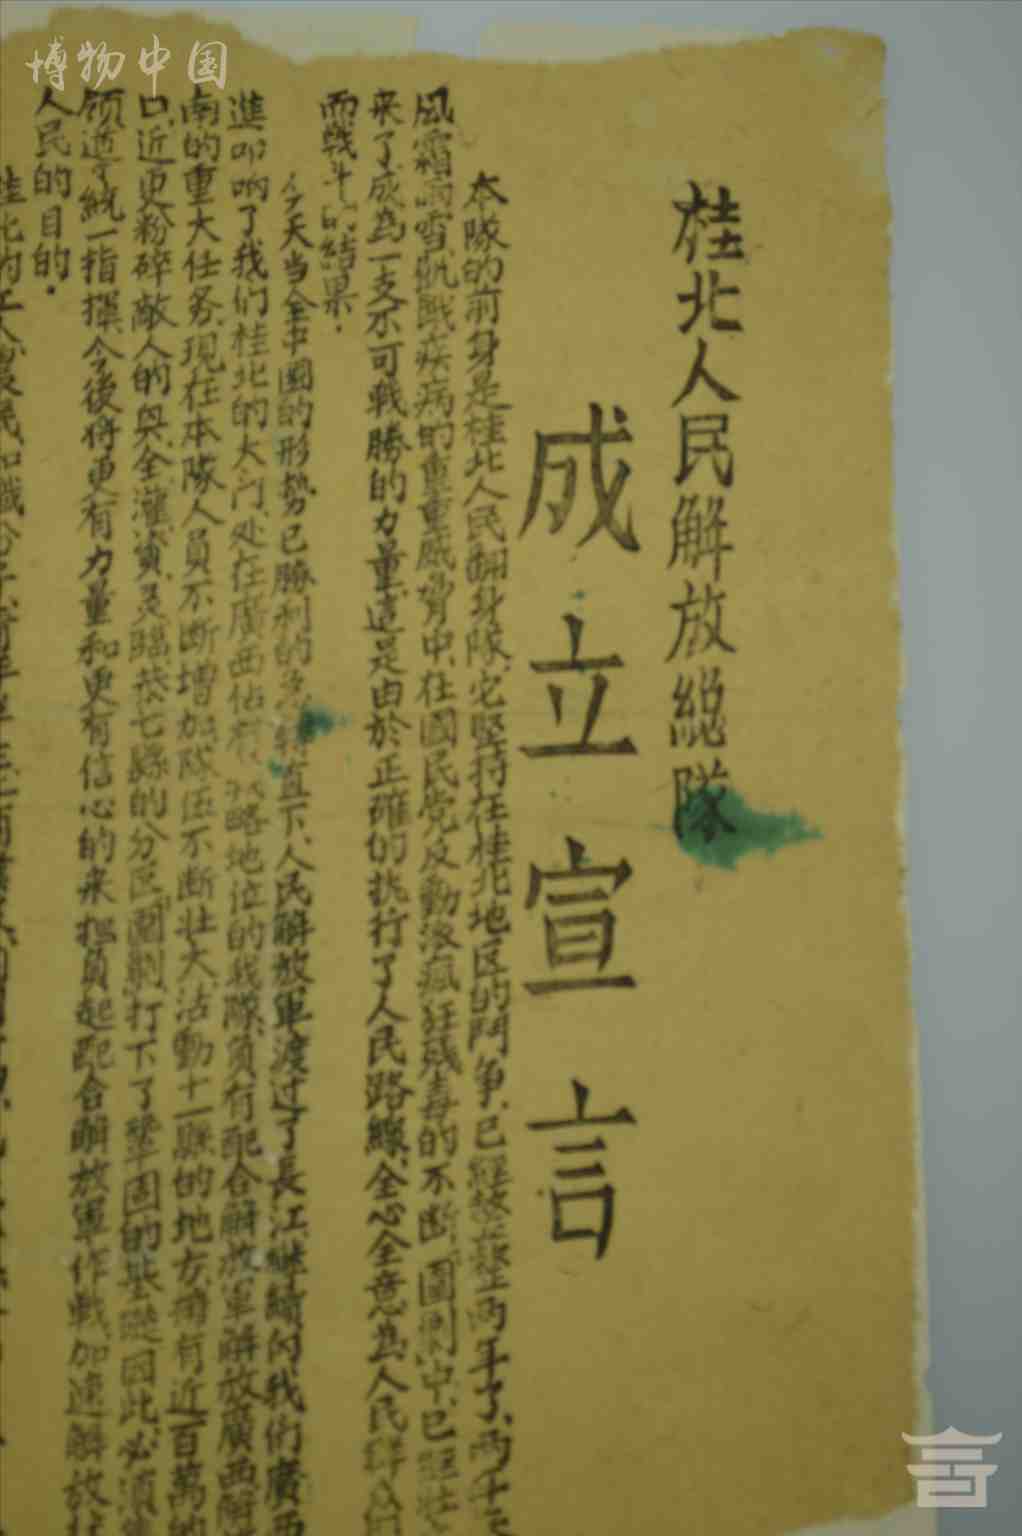 博物中国
桂北人民解放總隊
成立宣言
本隊的前身是桂北人民翻身隊,它堅持在桂北地区的鬥争,已經整整兩年了,兩年来
風霜雨雪飢餓疾病的重重威脅中,在國民党反動派瘋狂殘毒的不断圍剿中,已經壮
来了,成為一支不可戰勝的力量,這是由於正確的执行了人民路線,全心全意為人民群众
而戰斗的結果.
今天当全中國的形势已勝利的急轉直下,人民解放軍渡过了長江継續向我們廣西
進,叩响了我们桂北的大门,处在廣西佔有战略地位的我隊,負有配合解放軍解放廣西
南的重大任务,现在本隊人員不断增加,隊伍不断壮大,活動十一縣的地方,拥有近百萬的
口,近更粉碎敵人的興全灌資灵臨恭七縣的分区圍剿,打下了鞏固的基礎,因此,必須
领導,統一指揮,今後将更有力量和更有信心的来担負起配合解放軍作戰,加速解放
人民的目的.
桂北的工人農民和